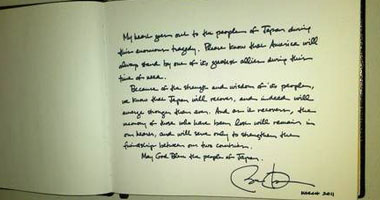 My heart goes out to the people of Japan during
this enormous tragedy. Please know that America will
always stand by one of its greatest allies during this
time of need.
Because of the strength and wisdom of its people,
we know that Japan will recover, and indeed will
emerge stronger than ever. And as it recovers, the
memory of those who have been lost will remain in
our hearts, and will serve only to strengthen the
friendship between our two countries.
May God Bless the people of Japan.
MARCH 2011